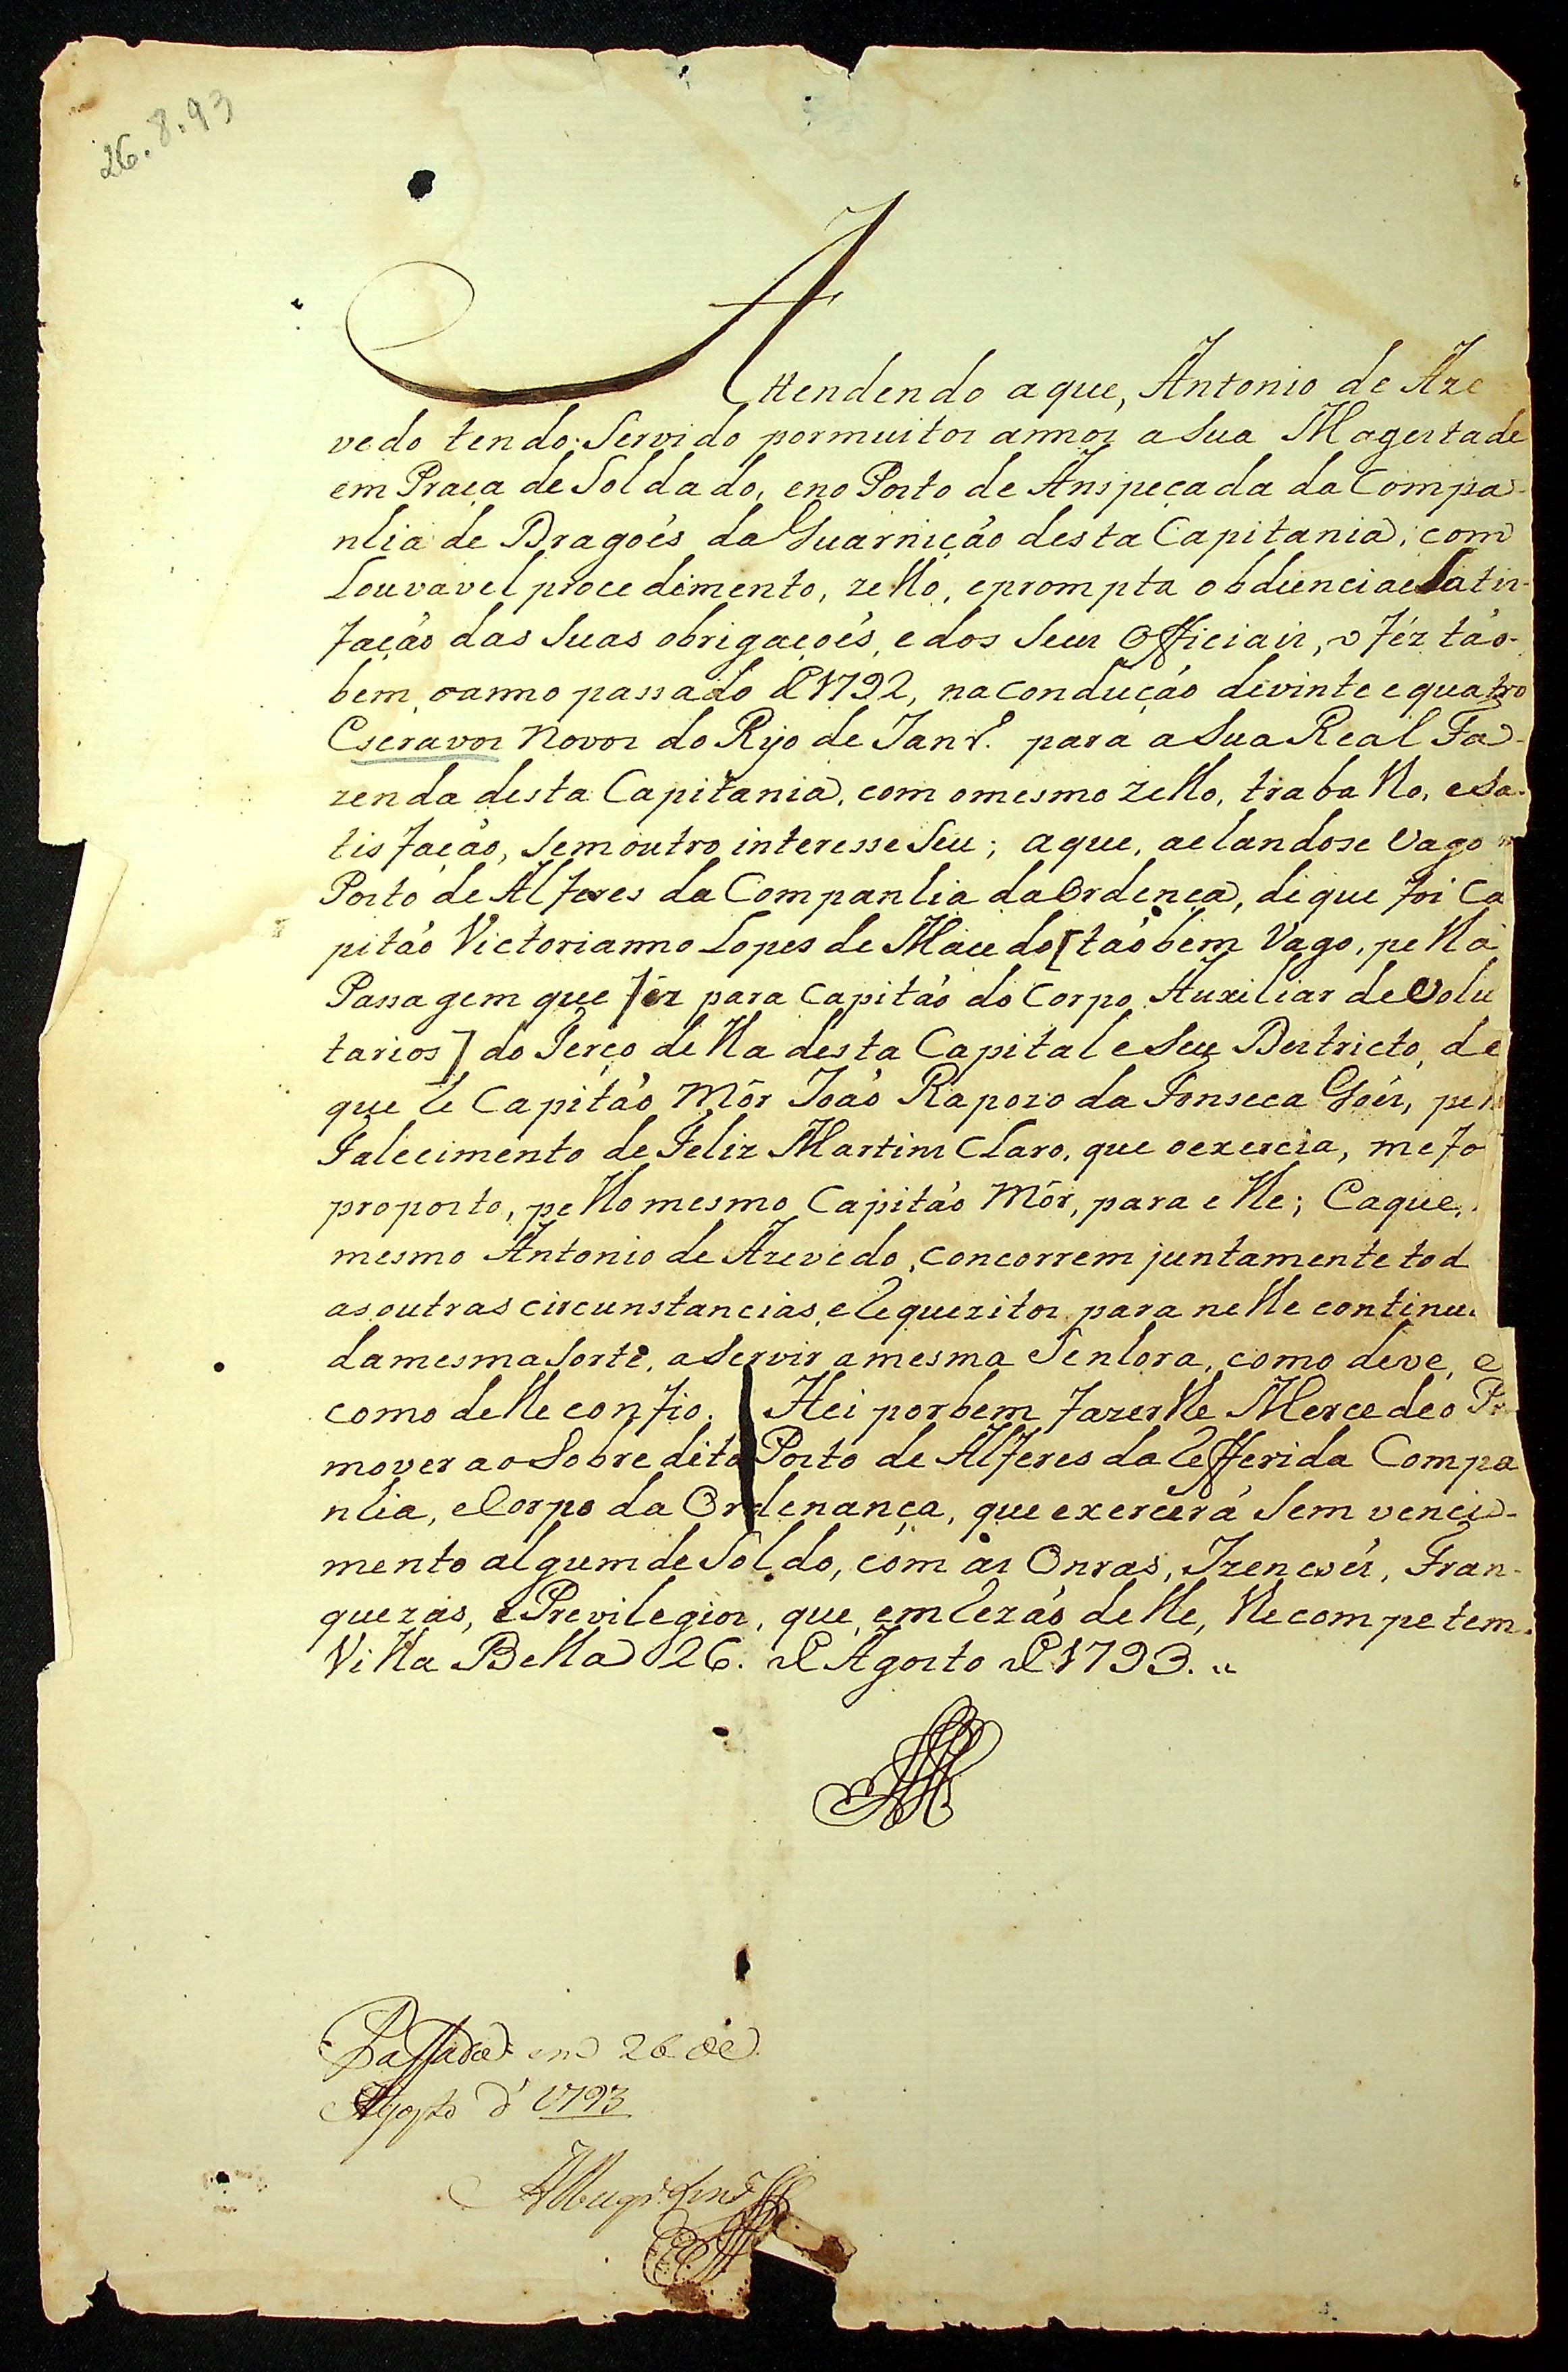 26.8.93
Attendendo aque, Antonio de Aze
vedo tendo servido pormuitos annos a Sua Magestade
em Praça de Soldado, eno Posto de Anspeçada da Compa-
nhia de Dragoẽs da Guarnição desta Capitania, com
Louvavel procedimento, zello, eprompta obdiencia eSatis-
fação das Suas obrigaçoẽs, e dos Seus Officiais, o féz tão-
bem, oanno passado de 1792, naconduçáo devinte equatro
Escravos Novos do Rijo de Janr.º para aSua Real Fa-
zenda desta Capitania, com omesmo zello, trabalho, eSa-
tisfação, Semoutro interesse Seu; aque, achandose Vago
Posto de Alferes da Companhia daOrdença, deque foi Ca
pitáo Victorianno Lopes de Macedo [táobem Vago, pella
Passagem que féz para Capitáo do Corpo Auxiliar deVolu
tarios] do Terço della desta Capital eSeu Destricto, de
que he Capitáo Mór Joáo Rapozo da Fonseca Góes,
Falecimento de Feliz Martins Claro, que oexercia, mefo
proposto, pellomesmo Capitáo Mór, para elle; Eaque,
mesmo Antonio de Azevedo, concorrem juntamente tod
asoutras circunstancias, erequezitos, para nelle continu
damesmaSorte, aServir amesma Senhora, como deve, e
como delle confio. Hei porbem fazerlhe Merce deo Pr
mover aoSobredito Posto de Alferes da Refferida Compa
nhia, eCorpo da Ordenança, que exercerá Sem venci-
mento algum de Soldo, com as Onras, Izençoés, Fran-
quezas, ePrevilegios, que, emrezáo delle, lhecompetem.
Villa Bella 26. de Agosto de 1793.
Passada em 26 de
Agosto d' 1793